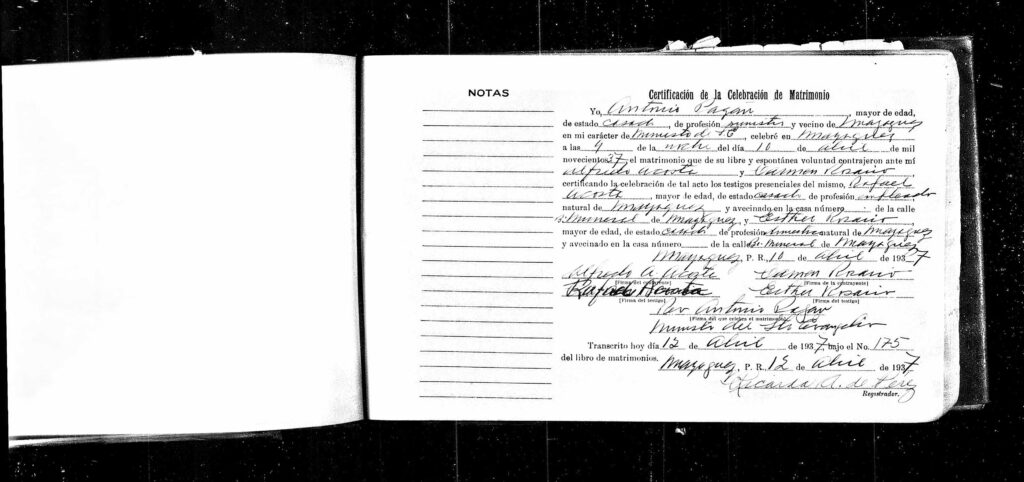 NOTAS
Certificación de la Celebración de Matrimonio
Yo, Antonio Pagan, mayor de edad,
de estado casado, de profesión ministro y vecino de Mayaguez
en mi carácter de Ministro de celebré en Mayaguez
a las 9 de la noche del día 10 de Abril de mil
novecientos 37 el matrimonio que de su libre y espontánea voluntad contrajeron ante mí
Alfredo Acosta y Carmen Rosario
certificando la celebración de tal acto los testigos presenciales del mismo, Rafael
Acosta, mayor de edad, de estado casado de profesión empleado
natural de Mayaguez y avecinado en la casa número de la calle
Bo. Mineral de Mayaguez y Esther Rosario,
mayor de edad, de estado casada de profesión domestica natural de Mayaguez
y avecinado en la casa número de la calle Bo. Mineral de Mayaguez
Mayaguez, P. R., 10 de Abril de 1937
Alfredo A. Acosta Carmen Rosario
[Firma del contrayente] [Firma de la contrayente]
Rafael Acosta Esther Rosario
[Firma del testigo] [Firma del testigo]
Rev Antonio Pagan
[Firma del que celebra el matrimonio]
Ministro del Sto Evangelio
Transcrito hoy día 12 de Abril de 1937 bajo el No. 175
del libro de matrimonios.
Mayaguez, P. R., 12 de Abril de 1937
Ricarda A. de Perez
Registrador.